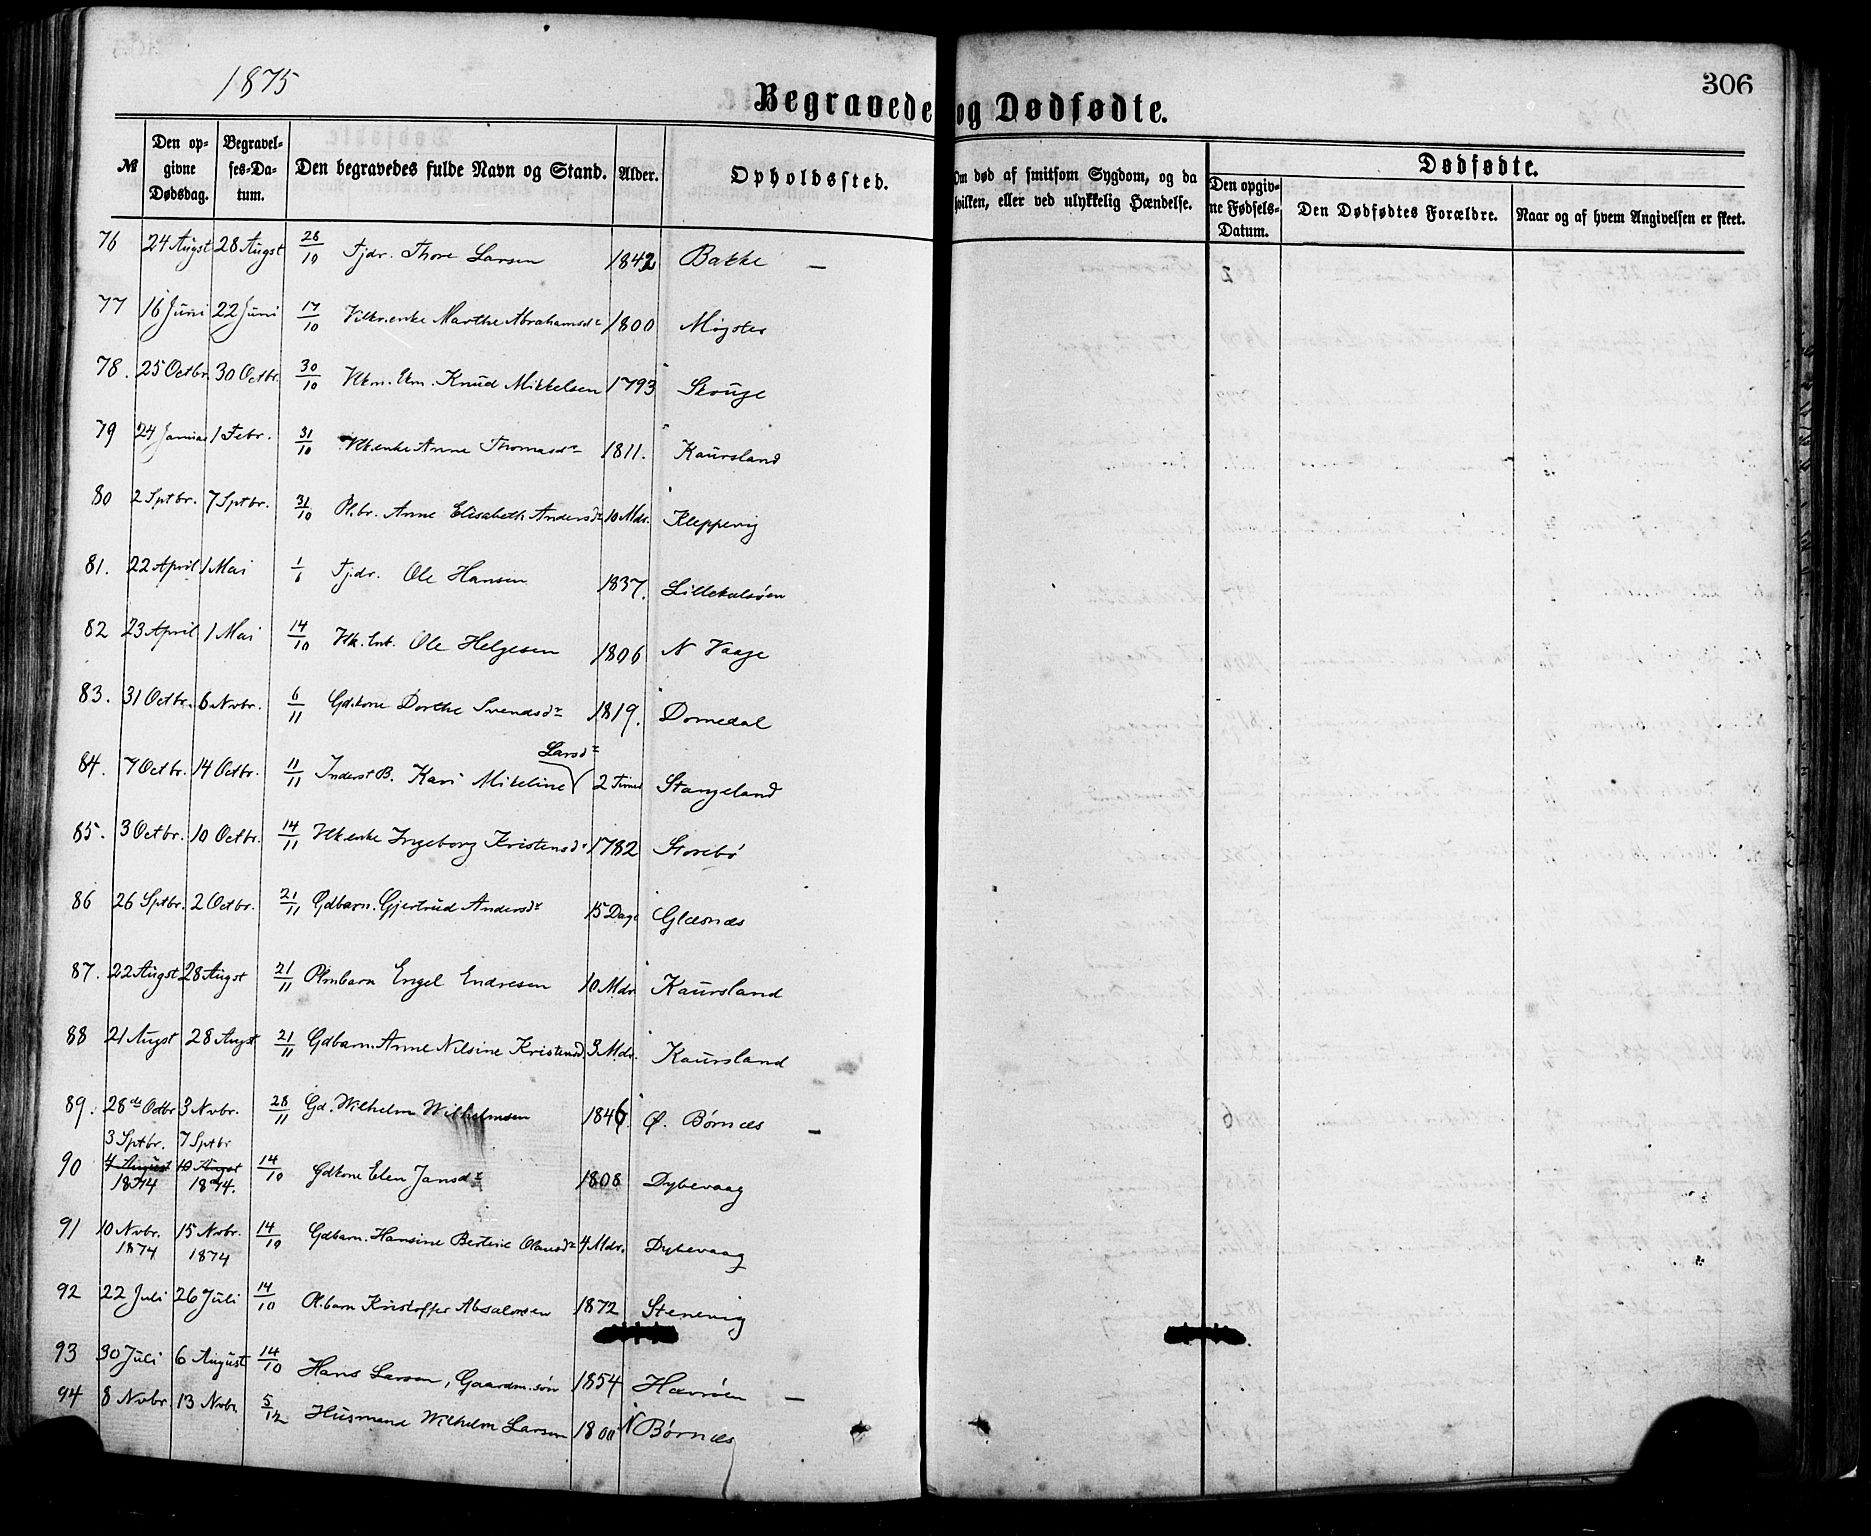 1875
306
Begravede og Dødfødte.
№
Den opgivne Dødsdag.
Begravelses-Datum.
Den begravedes fulde Navn og Stand.
Alder.
Opholdssted.
Om død af smitsom Sygdom, og da hvilken, eller ved ulykkelig Hændelse.
Dødfødte.
Den opgivne Fødsels-Datum.
Den Dødfødtes Forældre.
Naar og af hvem Angivelsen er skeet.
76 24 Augst 28 Augst 28/10 Fjdr. Thore Larsen 1842 Bakke —
77 16 Juni 22 Juni 17/10 Vilkr.enke Marthe Abrahamsdr 1800 Møgster
78. 25 Octbr. 30 Octbr. 30/10 Vkm. Em. Knud Mikkelsen 1793 Skouge
79 24 Januar 1 Febr. 31/10 Vlk.enke Anne Thomasdr 1811. Kaursland
80 2 Sptbr. 7 Sptbr. 31/10 Pl.br. Anne Elisabeth Andersdr 10 Mdr. Kleppevig
81. 22 April 1 Mai 1/6 Fjdr. Ole Hansen 1837. Lillekalsøen
82 23 April 1 Mai 14/10 Vlk. Enk. Ole Helgesen 1806 N Vaage
83. 31 Octbr. 6 Nvbr. 6/11 Gdkone Dorthe Svendsdr 1819. Domedal
84. 7 Octbr. 14 Octbr. 11/11 Inderst B. Kari Mikeline Larsdr 2 Timer Stangeland
85. 3 Octbr. 10 Octbr. 14/11 Vlk enke Ingeborg Kristensdr 1782 Storebø
86 26 Sptbr. 2 Octbr. 21/11 Gdbarn. Gjertrud Andersdr 15 Dage Glæsnæs
87. 22 Augst 28 Augst 21/11 Plmbarn Engel Endresen 10 Mdr Kaursland
88 21 Augst 28 Augst 21/11 Gdbarn. Anne Nilsine Kristensd. 3 Mdr. Kaursland
89. 28de Octbr 3 Nvbr. 28/11 Gd. Wilhelm Wilhelmsen 1846 Ø. Børnæs —
3 Sptbr. 7 Sptbr
90 4 August 10 Augst 14/10 Gdkone Elen Jansdr 1808 Dybevaag
1874 1874.
91 10 Nvbr. 15 Nvbr. 14/10 Gdbarn. Hansine Bertine Olausdr 4 Mdr. Dybevaag
1874 1874
92 22 Juli 26 Juli 14/10 Pl.barn Kristoffer Absalonsen 1872 Stenevig
93 30 Juli 6 August 14/10 Hans Larsen, Gaardm.søn 1854 Hævrøen —
94 8 Nvbr. 13 Nvbr. 5/12 Husmand Wilhelm Larsen 1800 N Børnæs